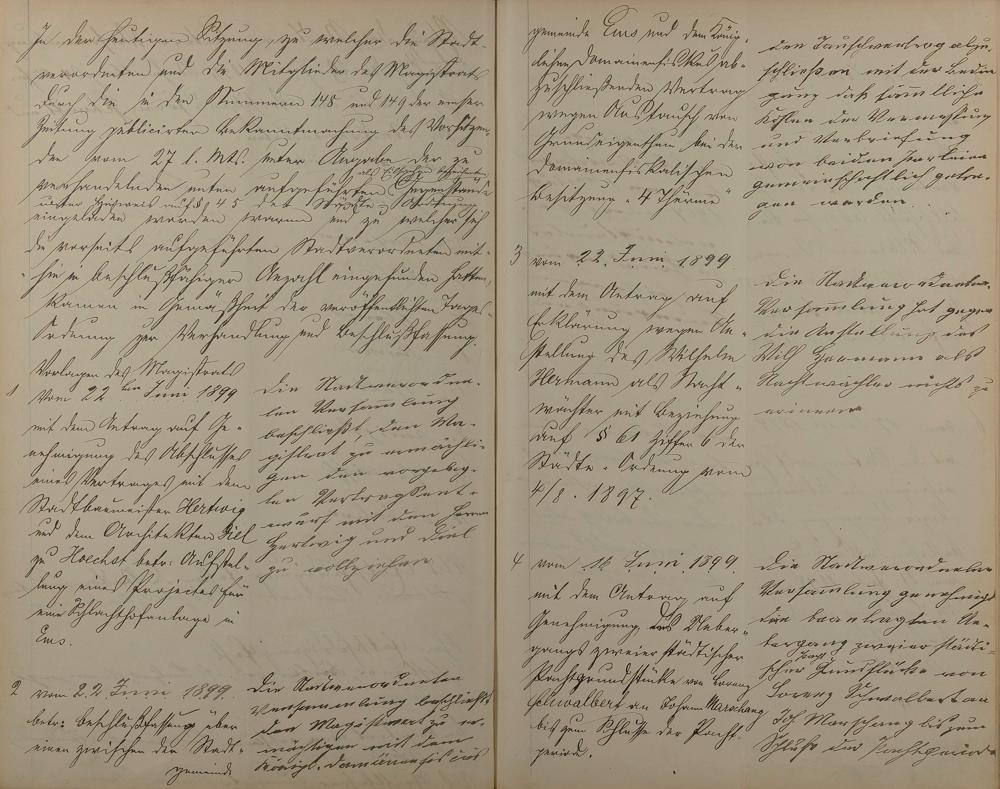 In der heutigen Sitzung, zu welcher die Stadt-
verordneten und die Mitglieder des Magistrats
durch die in den Nummern 148 und 149 der Emser
Zeitung publicirten Bekanntmachung des Vorsitzen-
den vom 27 l. Mts. unter Angabe der zu
verhandelnden unten aufgeführten Gegenstände
unter Hinweis auf § 45 der Städte-Ordnung
eingeladen worden waren und zu welcher sich
die vorseits aufgeführten Stadtverordneten mit-
hin in beschlußfähiger Anzahl eingefunden hatten,
kamen in Gemäßheit der veröffentlichten Tages-
Ordnung zur Verhandlung und Beschlußfassung.
Vorlagen des Magistrats
1 vom 22 ten Juni 1899
mit dem Antrag auf Ge-
nehmigung des Abschlusses
eines Vertrages mit dem
Stadtbaumeister Hertwig
und dem Architekten Diel
zu Hoechst betr: Aufstel-
lung eines Projectes für
eine Schlachthofanlage in
Ems.
Die Stadtverordne-
ten Versammlung
beschließt, den Ma-
gistrat zu ermächti-
gen den vorgeleg-
ten Vertragsent-
wurf mit den Herren
Hertwig und Diel
zu vollziehen
2 vom 22 Juni 1899.
betr: Beschlußfassung über
einen zwischen der Stadt-
gemeinde
Die Stadtverordneten
Versammlung beschließt
den Magistrat zu er-
mächtigen mit dem
Königl. Domainenfiscus
gemeinde Ems und dem König-
lichen Domainenfiskus ab-
zuschließenden Vertrag
wegen Austausch von
Grundeigenthum bei der
domainenfiskalischen
Besitzung "4 Thürme"
den Tauschvertrag abzu-
schließen mit der Bedin-
gung daß sämmtliche
Kosten der Vermessung
und Verbriefung
von beiden Parteien
gemeinschaftlich getra-
gen werden.
3 vom 22 Juni 1899
mit dem Antrag auf
Erklärung wegen An-
stellung des Wilhelm
Hermann als Nacht-
wächter mit Beziehung
auf § 61 Ziffer 6 der
Städte-Ordnung vom
4/8. 1897.
Die Stadtverordneten-
Versammlung hat gegen
die Anstellung des
Wilh Hermann als
Nachtwächter nichts zu
erinnern
4 vom 16 Juni 1899.
mit dem Antrag auf
Genehmigung des Ueber-
gangs zweier städtischer
Pachtgrundstücke von Lorenz
Schwalbert an Johann Marschang
bis zum Schlusse der Pacht-
periode.
Die Stadtverordneten
Versammlung genehmigt
den beantragten Ue-
bergang zweier städti-
scher Pacht Grundstücke von
Lorenz Schwalbert an
Joh Marschang bis zum
Schluß der Pachtperiode